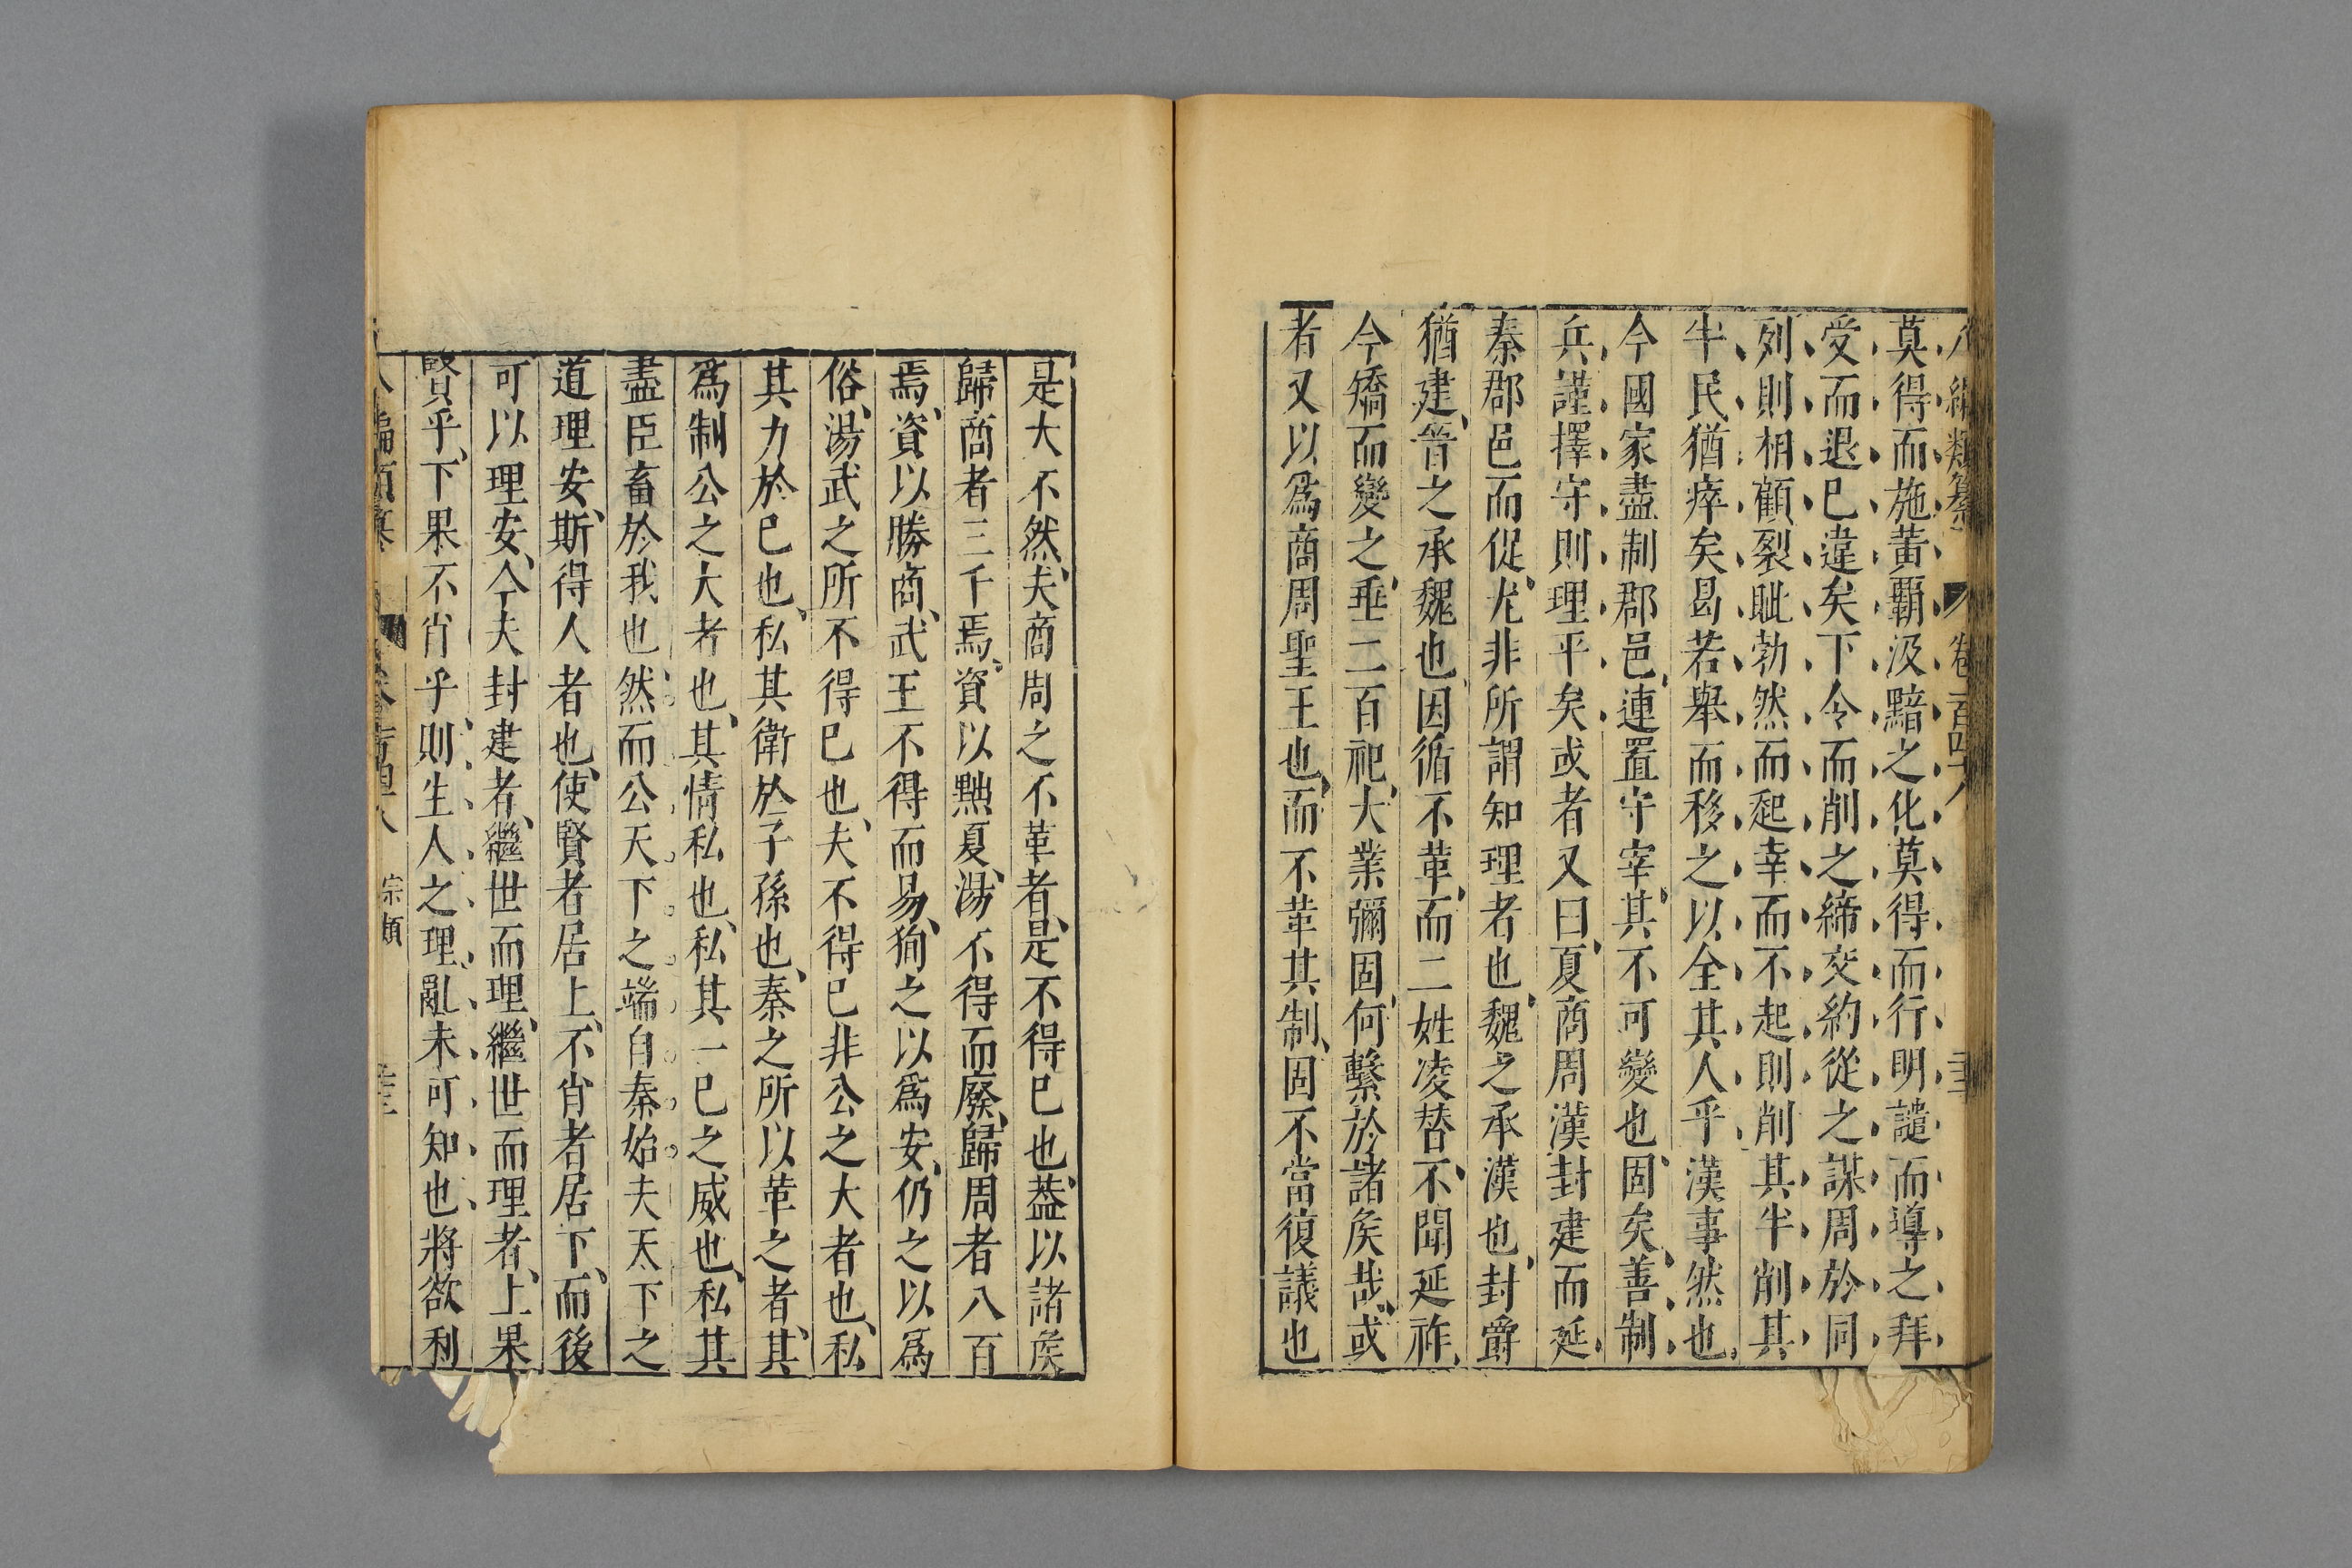 莫得而施黃霸汲黯之化莫得而行明譴而導之拜
受而退已違矣下令而削之締交約從之謀周於同
列則相顧裂眦勃然而起幸而不起則削其半削其
半民猶瘁矣曷若舉而移之以全其人乎漢事然也
今國家盡制郡邑連置守宰其不可變也固矣善制
兵謹擇守則理平矣或者又曰夏商周漢封建而延
秦郡邑而促尤非所謂知理者也魏之承漢也封爵
猶建晉之承魏也因循不革而二姓凌替不聞延祚
今矯而變之垂二百祀大業彌固何繫於諸矦哉或
者又以爲商周聖王也而不革其制固不當復議也
是大不然夫商周之不革者是不得已也葢以諸矦
歸商者三千焉資以黜夏湯不得而廢歸周者八百
焉資以勝商武王不得而易狥之以爲安仍之以爲
俗湯武之所不得已也夫不得已非公之大者也私
其力於已也私其衛於子孫也秦之所以革之者其
爲制公之大者也其情私也私其一已之威也私其
盡臣畜於我也然而公天下之端自秦始夫天下之
道理安斯得人者也使賢者居上不肖者居下而後
可以理安今夫封建者繼世而理繼世而理者上果
賢乎下果不肖乎則生人之理亂未可知也將欲利